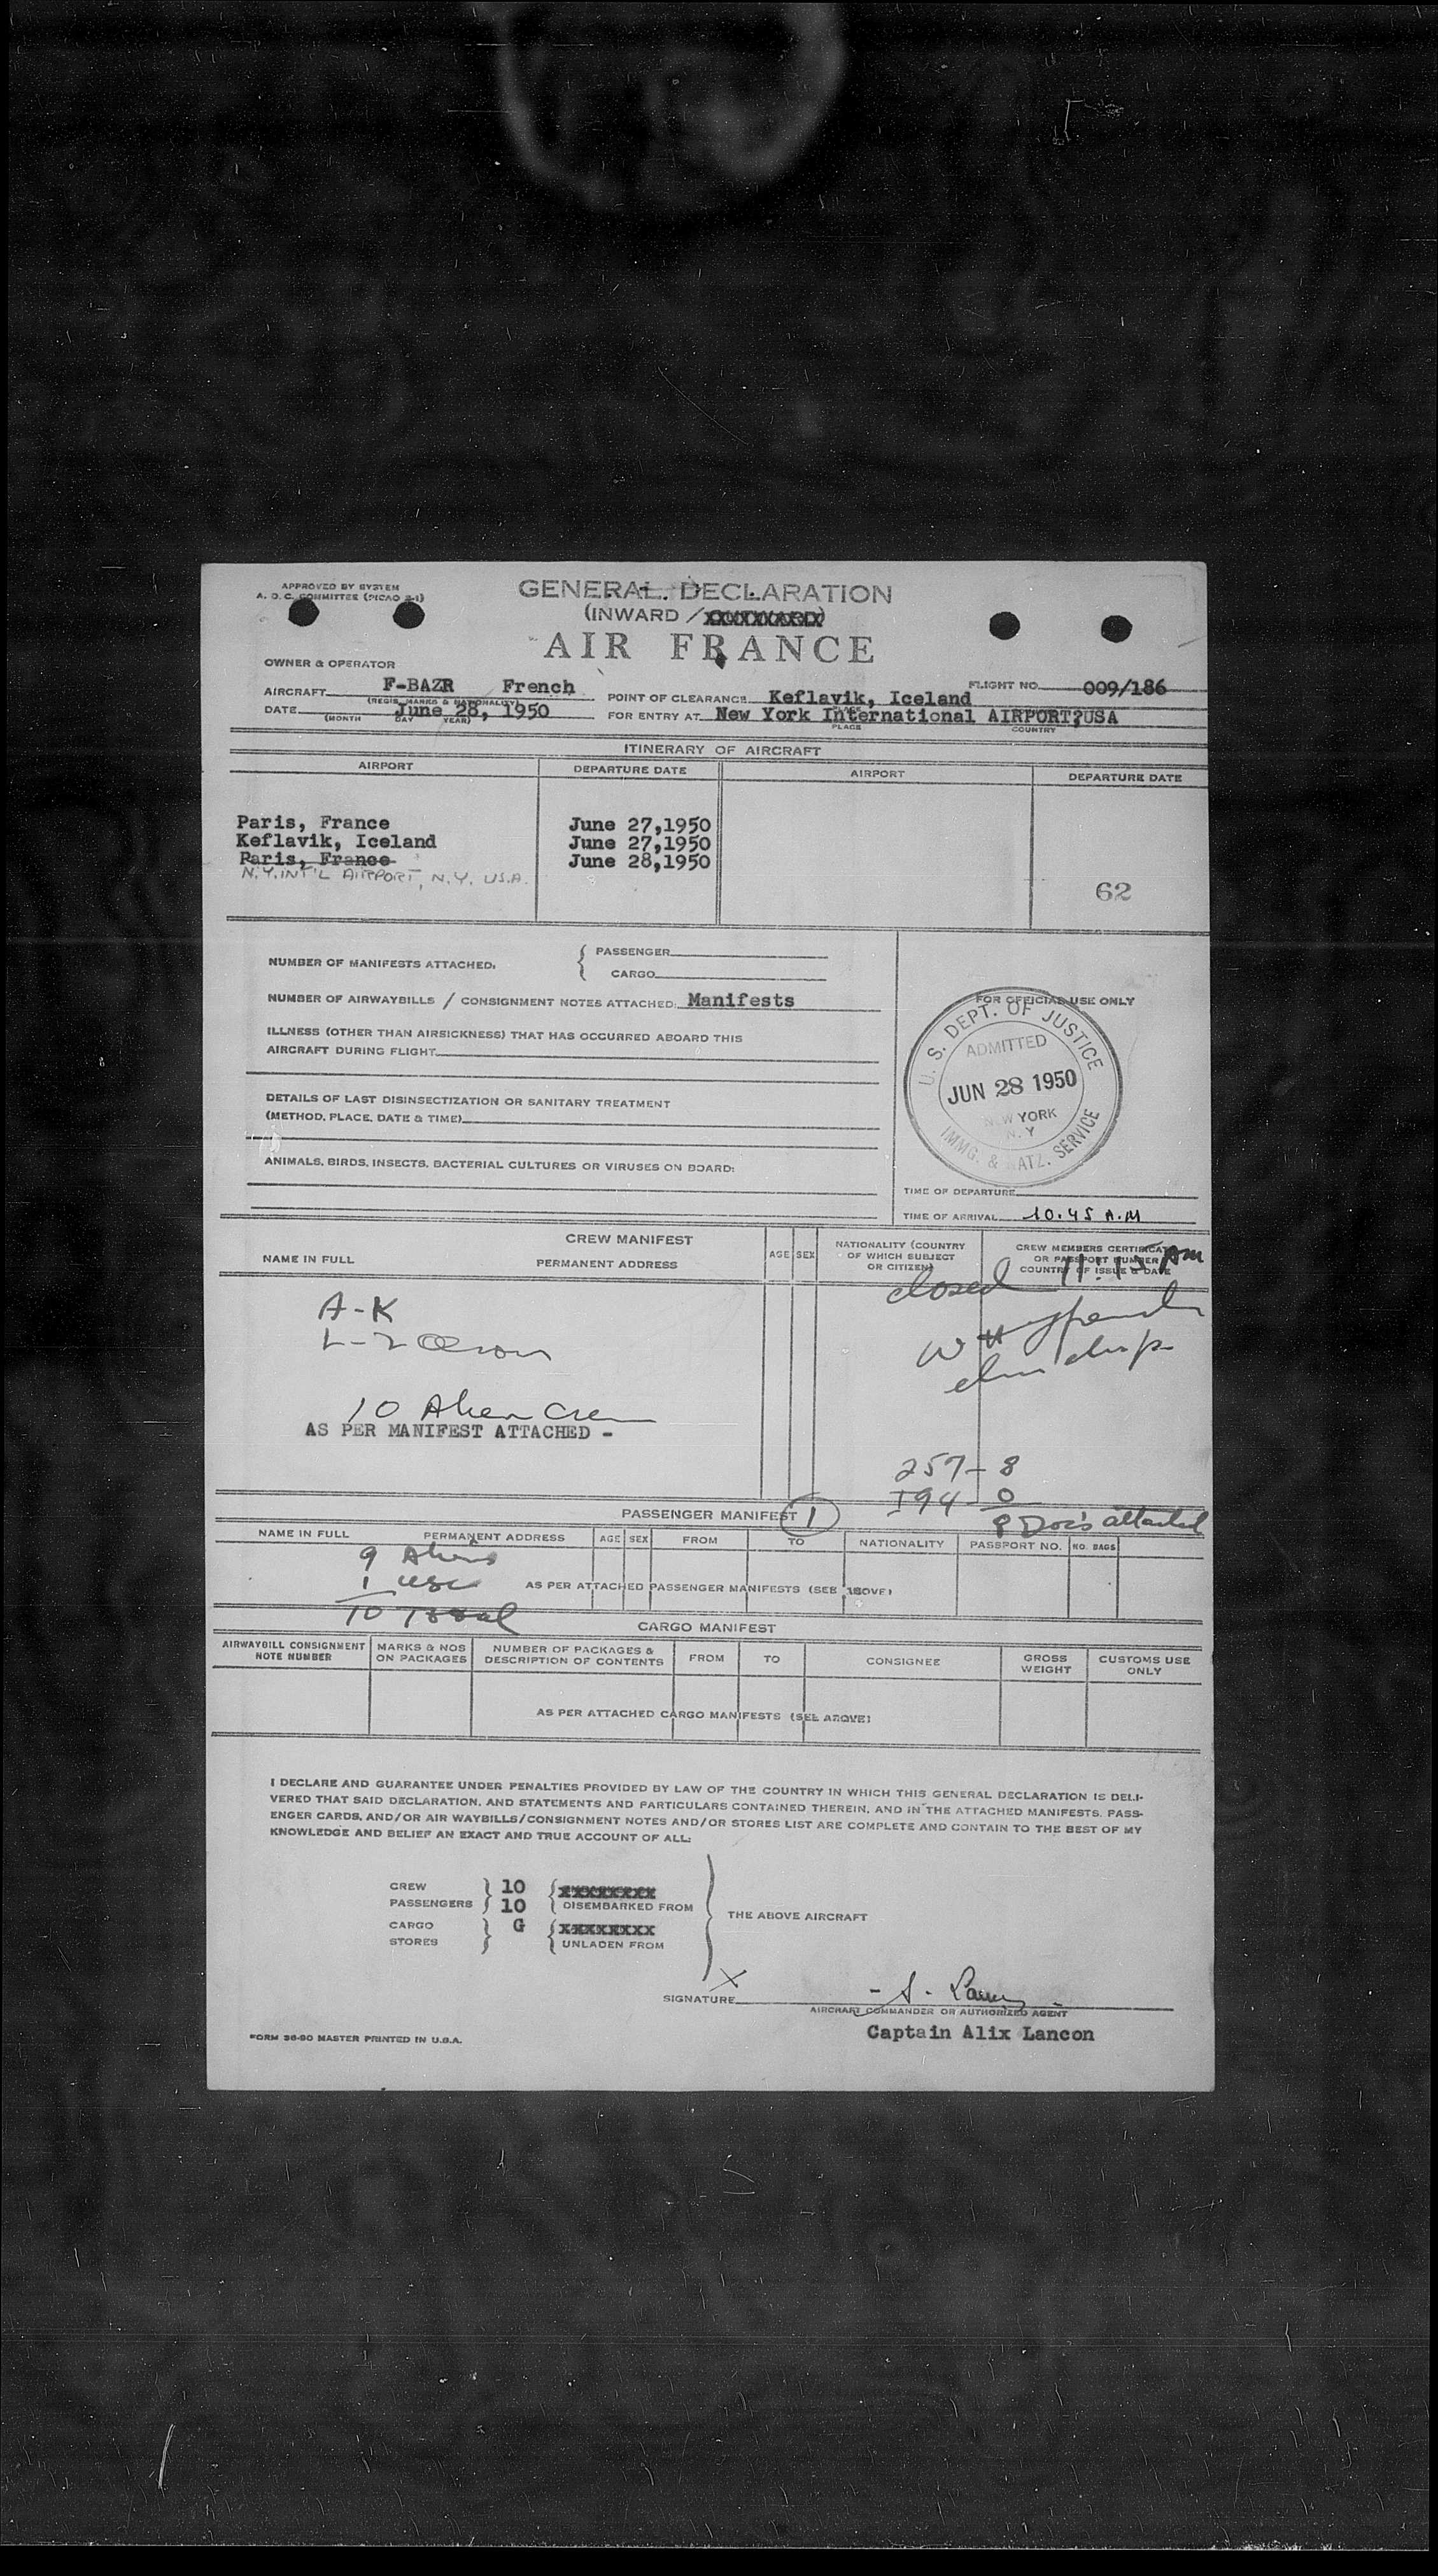 APPROVED BY SYSTEM
A. O. C. COMMITTEE (PICAO 2-1)
GENERAL DECLARATION
(INWARD / XXXXXXXXX)
AIR FRANCE
OWNER & OPERATOR
AIRCRAFT F-BAZR French
(REGIS. MARKS & NATIONALITY)
POINT OF CLEARANCE Keflavik, Iceland
PLACE
FLIGHT NO. 009/186
DATE June 28, 1950
(MONTH DAY YEAR)
FOR ENTRY AT New York International AIRPORT,USA
PLACE COUNTRY
ITINERARY OF AIRCRAFT
AIRPORT DEPARTURE DATE AIRPORT DEPARTURE DATE
Paris, France June 27,1950
Keflavik, Iceland June 27,1950
Paris, France June 28,1950
N.Y. INT'L AIRPORT, N.Y. U.S.A.
62
NUMBER OF MANIFESTS ATTACHED: { PASSENGER
CARGO
NUMBER OF AIRWAYBILLS / CONSIGNMENT NOTES ATTACHED: Manifests
ILLNESS (OTHER THAN AIRSICKNESS) THAT HAS OCCURRED ABOARD THIS
AIRCRAFT DURING FLIGHT
DETAILS OF LAST DISINSECTIZATION OR SANITARY TREATMENT
(METHOD, PLACE, DATE & TIME)
ANIMALS, BIRDS, INSECTS, BACTERIAL CULTURES OR VIRUSES ON BOARD:
FOR OFFICIAL USE ONLY
U. S. DEPT. OF JUSTICE
ADMITTED
JUN 28 1950
NEW YORK
N.Y
IMMG. & NATZ. SERVICE
TIME OF DEPARTURE
TIME OF ARRIVAL 10.45 A.M
CREW MANIFEST
NAME IN FULL PERMANENT ADDRESS AGE SEX
NATIONALITY (COUNTRY
OF WHICH SUBJECT
OR CITIZEN)
CREW MEMBERS CERTIFICATE
OR PASSPORT NUMBER
COUNTRY OF ISSUE & DATE
closed 11:15 AM
A-K
L-Z
10 Alien Crew
AS PER MANIFEST ATTACHED -
257- 8
I94- 0
8 Doc's attached
PASSENGER MANIFEST 1
NAME IN FULL PERMANENT ADDRESS AGE SEX FROM TO NATIONALITY PASSPORT NO. NO. BAGS
9 Aliens
1 USC
10 Total
AS PER ATTACHED PASSENGER MANIFESTS (SEE ABOVE)
CARGO MANIFEST
AIRWAYBILL CONSIGNMENT
NOTE NUMBER
MARKS & NOS
ON PACKAGES
NUMBER OF PACKAGES &
DESCRIPTION OF CONTENTS
FROM TO CONSIGNEE
GROSS
WEIGHT
CUSTOMS USE
ONLY
AS PER ATTACHED CARGO MANIFESTS (SEE ABOVE)
I DECLARE AND GUARANTEE UNDER PENALTIES PROVIDED BY LAW OF THE COUNTRY IN WHICH THIS GENERAL DECLARATION IS DELI-
VERED THAT SAID DECLARATION, AND STATEMENTS AND PARTICULARS CONTAINED THEREIN, AND IN THE ATTACHED MANIFESTS, PASS-
ENGER CARDS, AND/OR AIR WAYBILLS/CONSIGNMENT NOTES AND/OR STORES LIST ARE COMPLETE AND CONTAIN TO THE BEST OF MY
KNOWLEDGE AND BELIEF AN EXACT AND TRUE ACCOUNT OF ALL:
CREW 10 XXXXXXXX
PASSENGERS 10 DISEMBARKED FROM
CARGO G XXXXXXXX
STORES UNLADEN FROM
THE ABOVE AIRCRAFT
X
SIGNATURE
AIRCRAFT COMMANDER OR AUTHORIZED AGENT
Captain Alix Lancon
FORM 36-90 MASTER PRINTED IN U.S.A.